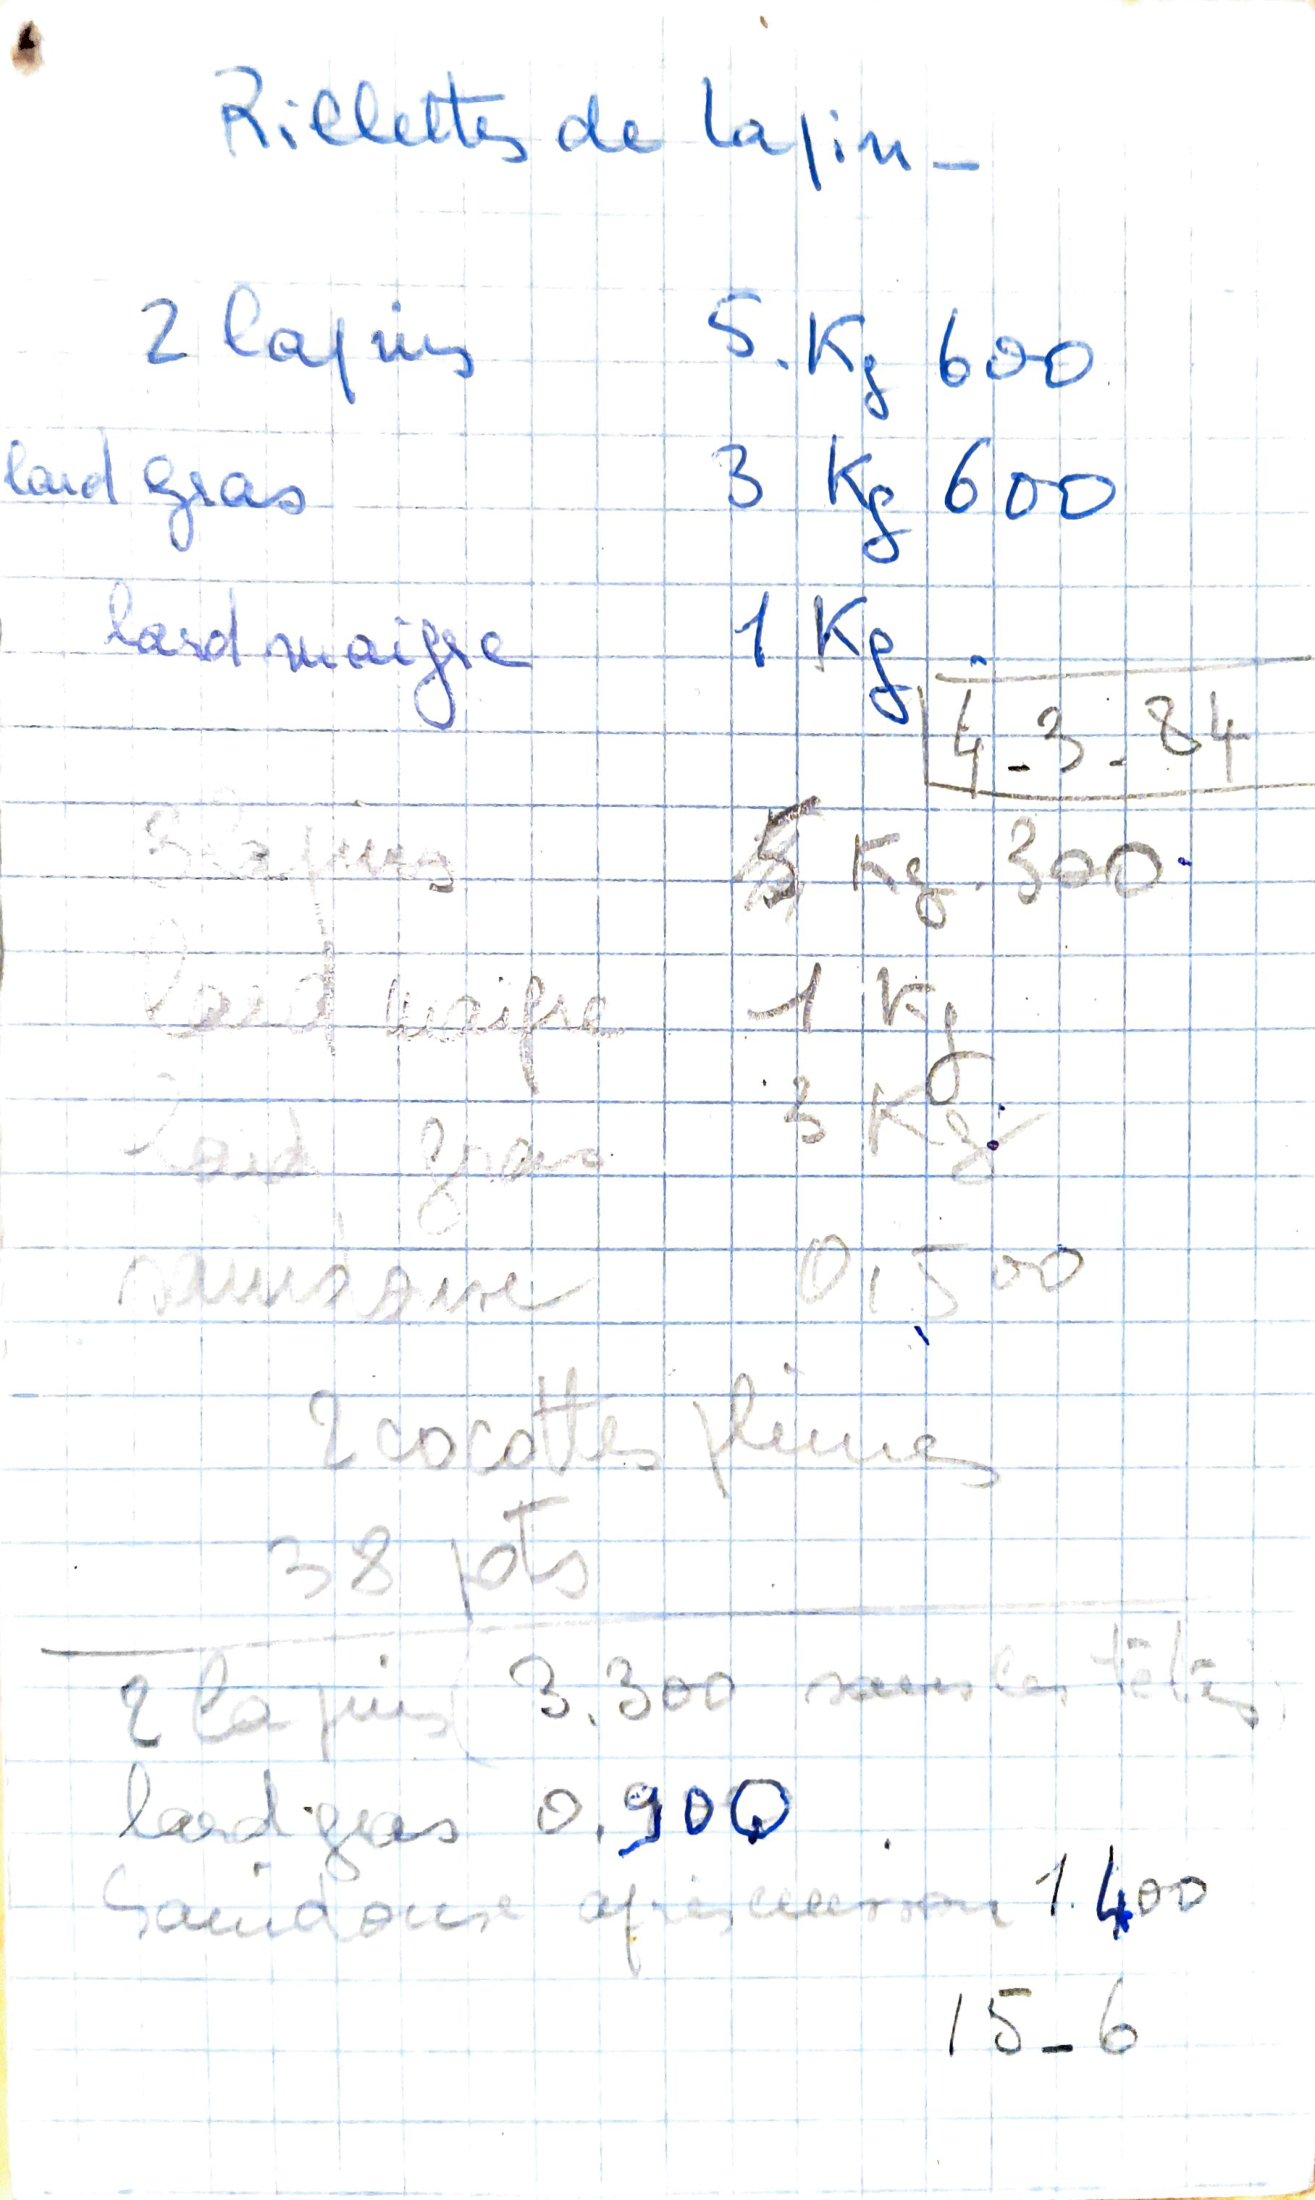 Rillettes de lapin -
2 lapins 5. Kg 600
lard gras 3 Kg 600
lard maigre 1 Kg.
4 - 3 - 84
3 lapins 5 Kg. 300
lard maigre 1 Kg
lard gras 3 Kg
saindoux 0,500
2 cocottes pleines
38 pots
2 lapins (3.300 sans les têtes)
lard gras 0.900
Saindoux après cuisson 1.400
15 - 6